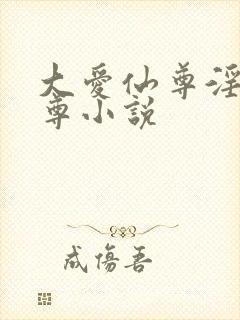 大爱仙尊淫
尊小说
成伤吾